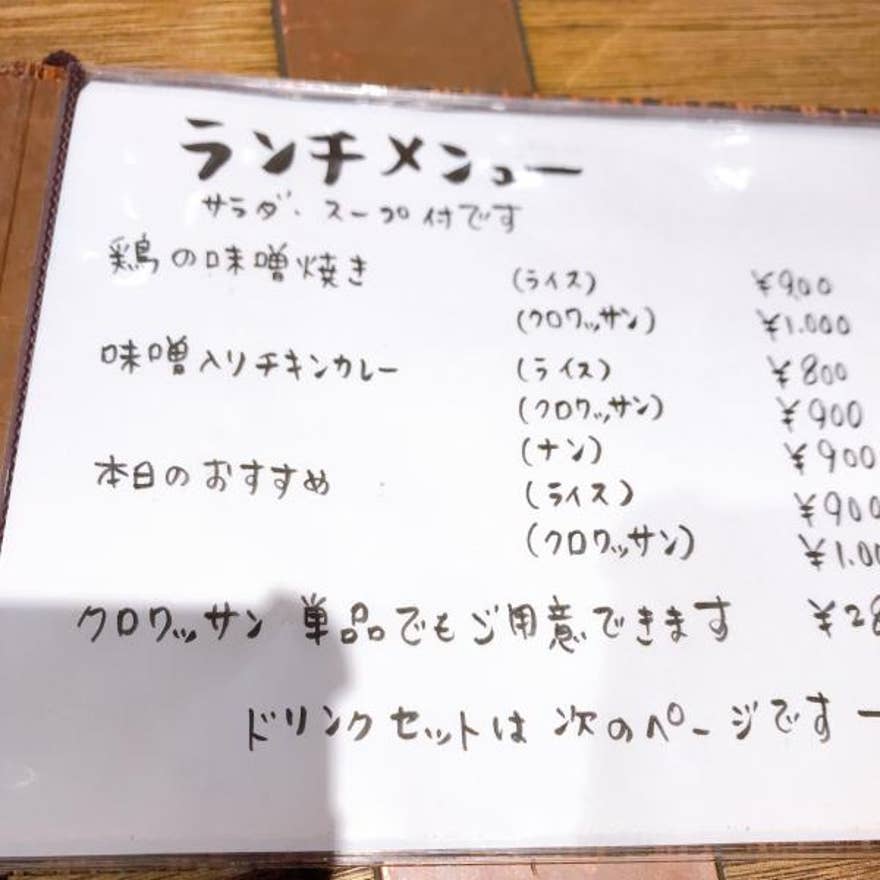 ランチメニュー
サラダ・スープ付です
鶏の味噌焼き (ライス) ¥900
(クロワッサン) ¥1.000
味噌入りチキンカレー (ライス) ¥800
(クロワッサン) ¥900
(ナン) ¥900
本日のおすすめ (ライス) ¥900
(クロワッサン)
クロワッサン 単品でもご用意できます
ドリンクセットは 次のページです